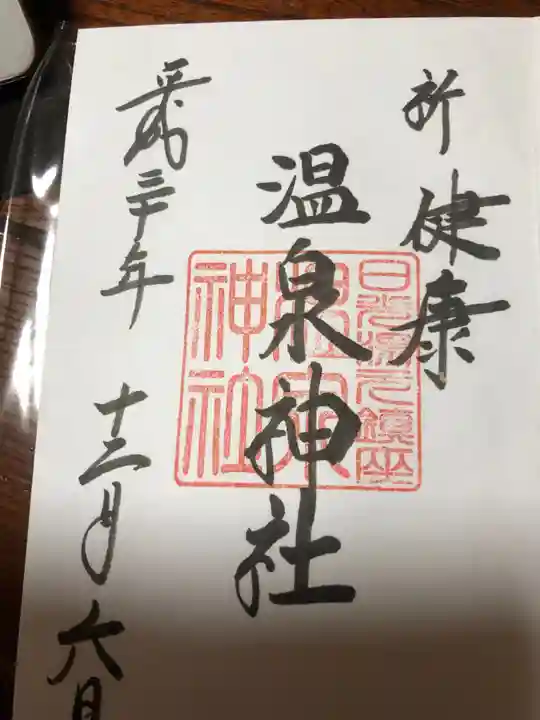 祈 健康
日光湯元鎮座
温泉神社
温泉神社
平成三十年 十二月 六日